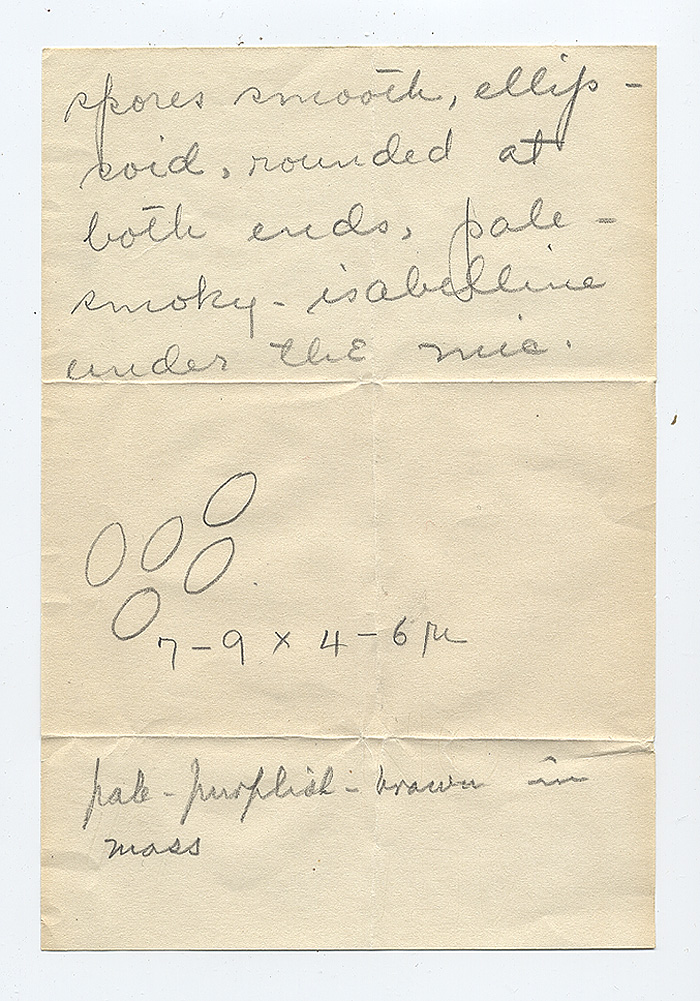 spores smooth, ellip-
soid, rounded at
both ends, pale-
smoky-isabelline
under the mic.
7-9 x 4-6 µ
pale-purplish-brown in
mass